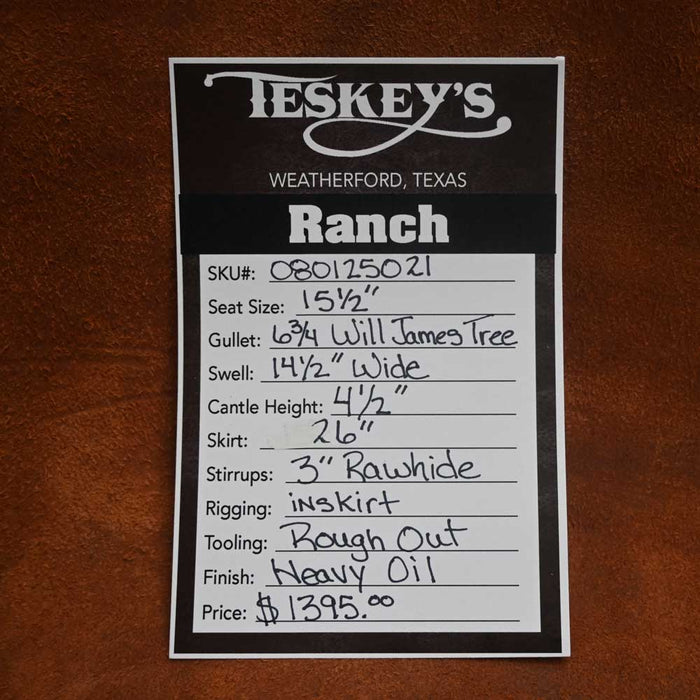 TESKEY'S
WEATHERFORD, TEXAS
Ranch
SKU#: 080125021
Seat Size: 15½"
Gullet: 6¾ Will James Tree
Swell: 14½" Wide
Cantle Height: 4½"
Skirt: 26"
Stirrups: 3" Rawhide
Rigging: inskirt
Tooling: Rough Out
Finish: Heavy Oil
Price: $1395.00